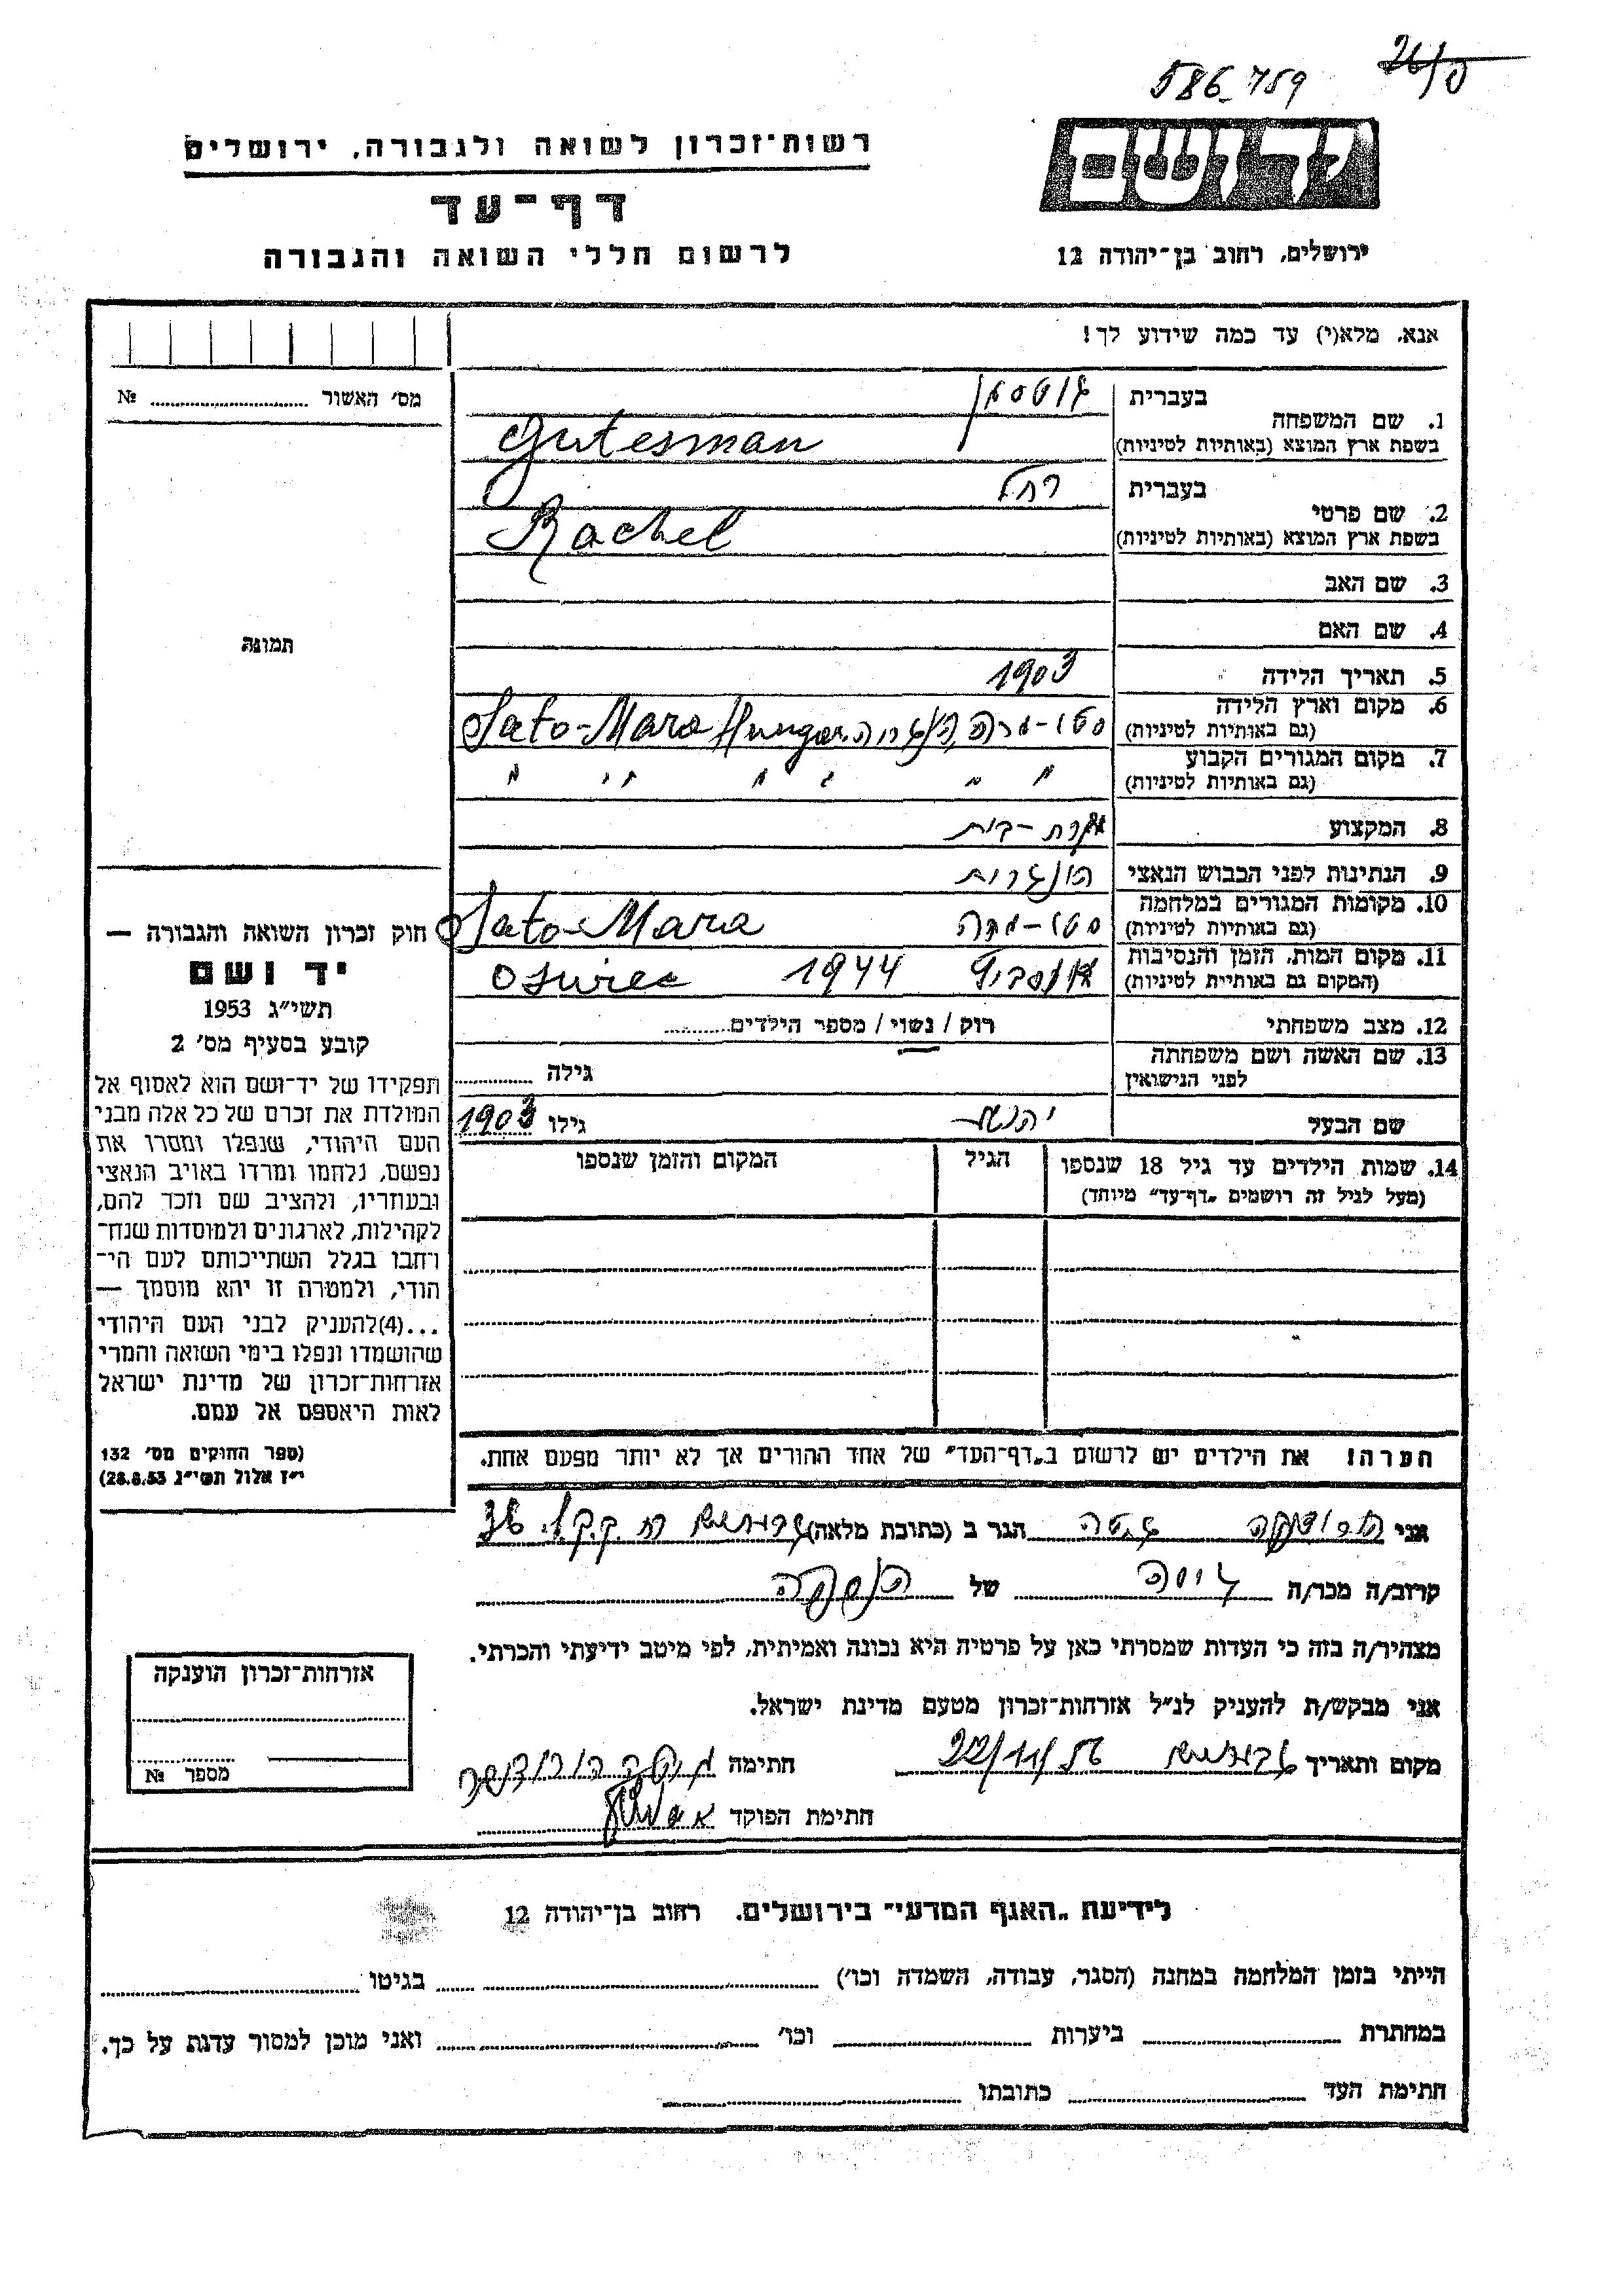 586-759
26/ס
רשות־זכרון לשואה ולגבורה, ירושלים
דף־עד
לרשום חללי השואה והגבורה
ירושלים, רחוב בן־יהודה 12
אנא, מלא(י) עד כמה שידוע לך!
מס׳ האשור № 
1. שם המשפחה
בעברית גוטסמן
בשפת ארץ המוצא (באותיות לטיניות) Gutesman
2. שם פרטי
בעברית רחל
בשפת ארץ המוצא (באותיות לטיניות) Rachel
3. שם האב
4. שם האם
תמונה
5. תאריך הלידה 1903
6. מקום וארץ הלידה
(גם באותיות לטיניות) סטו-מרה, הונגריה Sato-Mara Hungar.
7. מקום המגורים הקבוע
(גם באותיות לטיניות) " " " " " "
8. המקצוע עקרת-בית
9. הנתינות לפני הכבוש הנאצי הונגרית
10. מקומות המגורים במלחמה
(גם באותיות לטיניות) סטו-מרה Sato-Mara
11. מקום המות, הזמן והנסיבות
(המקום גם באותיות לטיניות) 1944 Osuree
12. מצב משפחתי רוק / נשוי / מספר הילדים
13. שם האשה ושם משפחתה
לפני הנישואין גילה
שם הבעל גילו 1903
14. שמות הילדים עד גיל 18 שנספו
(מעל לגיל זה רושמים „דף־עד״ מיוחד)
הגיל
המקום והזמן שנספו
הערה! את הילדים יש לרשום ב„דף־העד״ של אחד ההורים אך לא יותר מפעם אחת.
חוק זכרון השואה והגבורה —
יד ושם
תשי״ג 1953
קובע בסעיף מס׳ 2
תפקידו של יד־ושם הוא לאסוף אל
המולדת את זכרם של כל אלה מבני
העם היהודי, שנפלו ומסרו את
נפשם, נלחמו ומרדו באויב הנאצי
ובעוזריו, ולהציב שם וזכר להם,
לקהילות, לארגונים ולמוסדות שנח־
רבו בגלל השתייכותם לעם הי־
הודי, ולמטרה זו יהא מוסמך —
...(4)להעניק לבני העם היהודי
שהושמדו ונפלו בימי השואה והמרי
אזרחות־זכרון של מדינת ישראל
לאות היאספם אל עמם.
(ספר החוקים מס׳ 132
י״ז אלול תשי״ג 28.8.53)
אני הגר ב (כתובת מלאה) ק.ק.ל.
קרוב/ה מכר/ה גיסה של
מצהיר/ה בזה כי העדות שמסרתי כאן על פרטיה היא נכונה ואמיתית, לפי מיטב ידיעתי והכרתי.
אני מבקש/ת להעניק לנ״ל אזרחות־זכרון מטעם מדינת ישראל.
מקום ותאריך 22/11/56 חתימה
חתימת הפוקד
אזרחות־זכרון הוענקה
מספר №
לידיעת „האגף המדעי״ בירושלים, רחוב בן־יהודה 12
הייתי בזמן המלחמה במחנה (הסגר, עבודה, השמדה וכו׳) בגיטו
במחתרת ביערות וכו׳ ואני מוכן למסור עדות על כך.
חתימת העד כתובתו